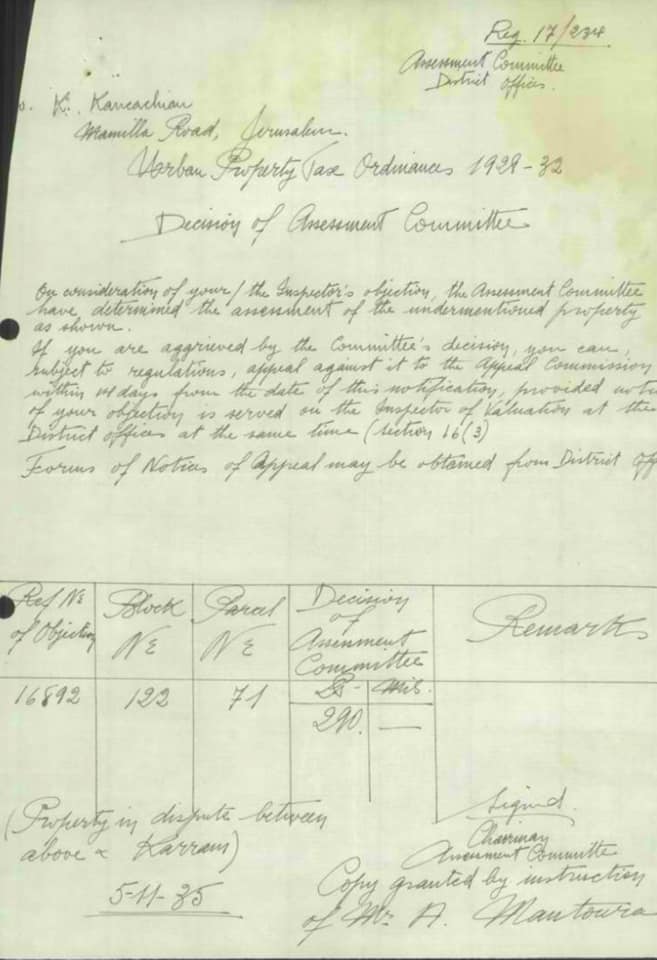 Reg. 17/234
Assessment Committee
District Offices.
K. Kancachian
Mamilla Road, Jerusalem.
Urban Property Tax Ordinances 1929-32
Decision of Assessment Committee
On consideration of your / the Inspector's objection, the Assessment Committee
have determined the assessment of the undermentioned property
as shown.
If you are aggrieved by the Committee's decision, you can,
subject to regulations, appeal against it to the Appeal Commission
within days from the date of this notification, provided
of your objection is served on the Inspector of Valuation at the
District offices at the same time (section 16(3)
Forms of Notices of Appeal may be obtained from District Off
Ref No of Objection
Block No
Parcel No
Decision of Assessment Committee
Remarks
Mils.
16892 122 71 290. —
(Property in dispute between
above & Karram)
5-11-35
Signed.
Chairman
Assessment Committee
Copy granted by instruction
of Mr. A. Mantoura